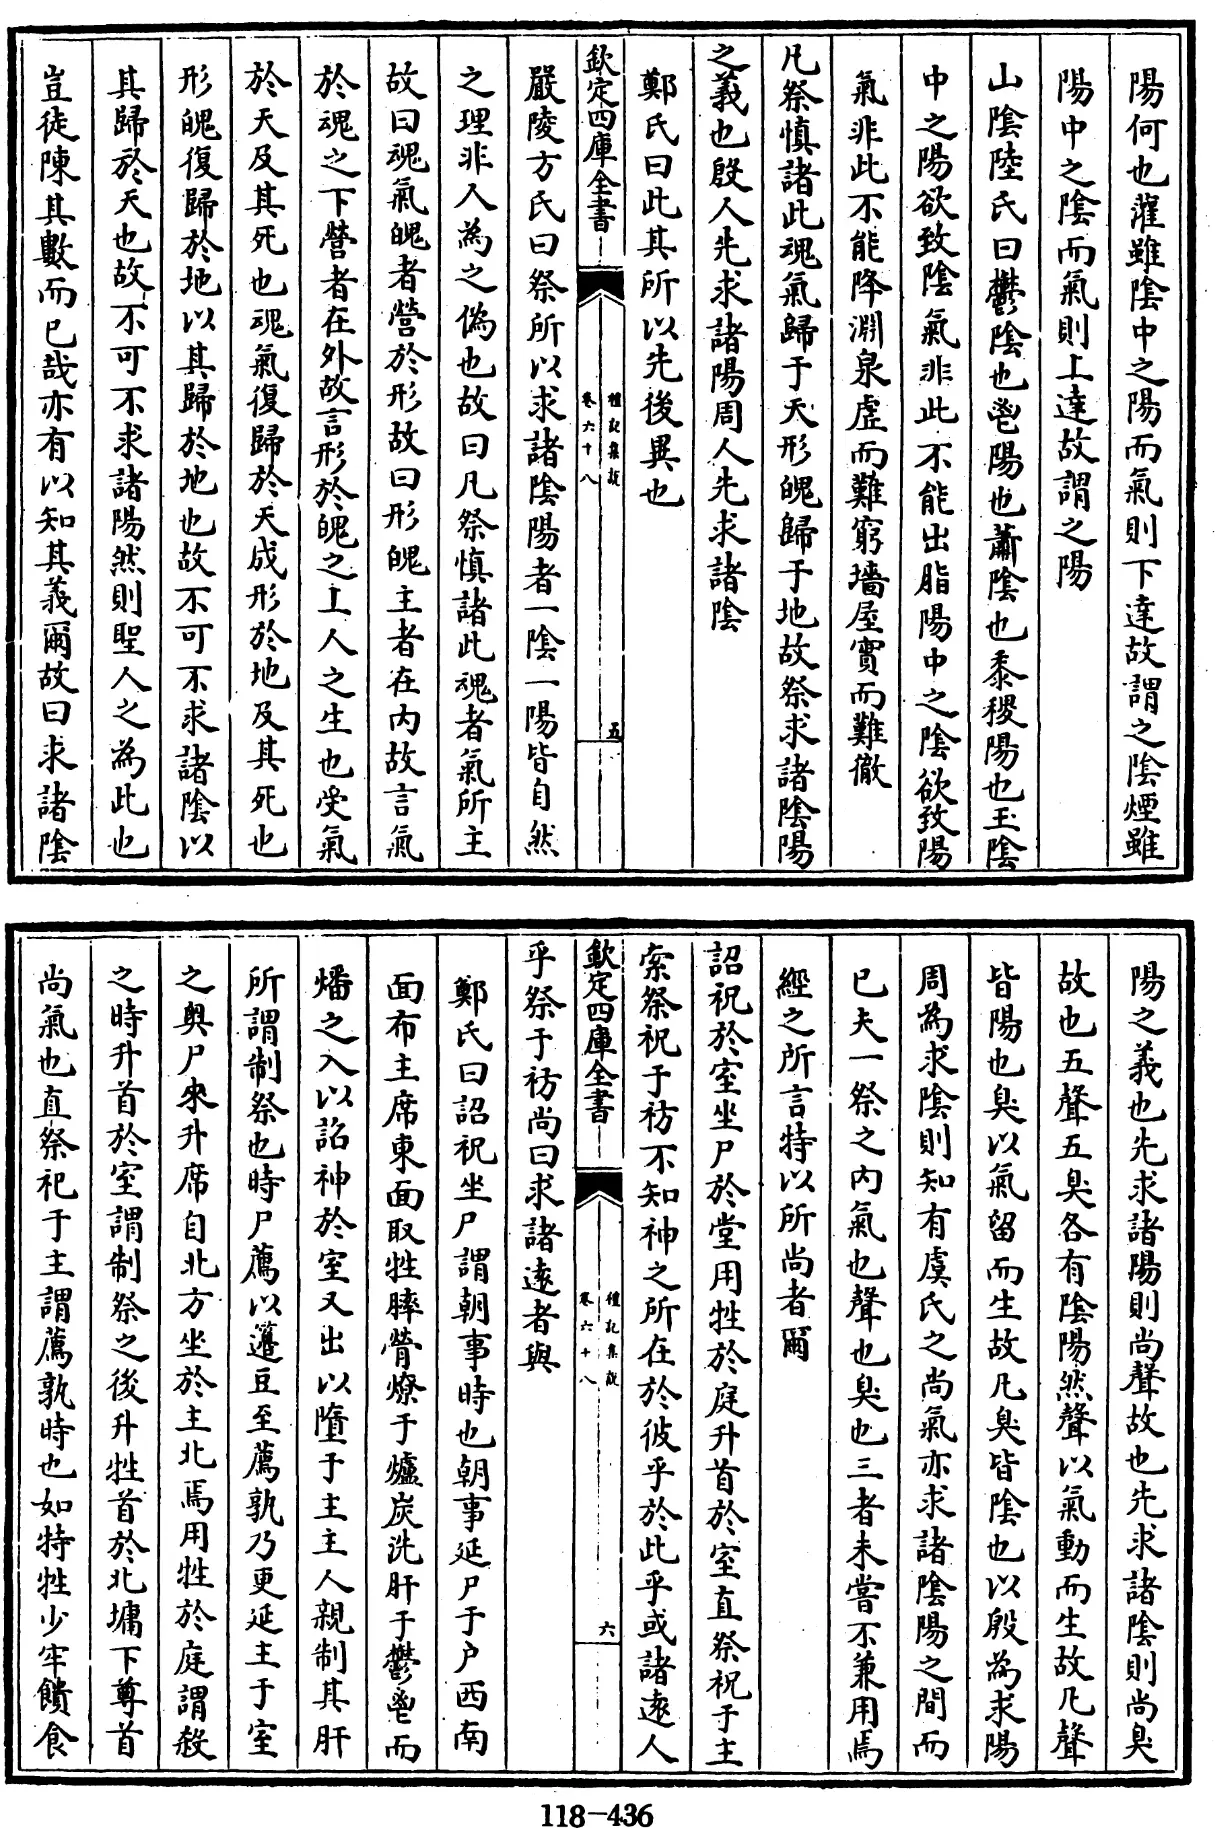 陽何也灌雖陰中之陽而氣則下達故謂之陰煙雖
陽中之陰而氣則上達故謂之陽
山陰陸氏曰鬱陰也鬯陽也蕭陰也黍稷陽也玉陰
中之陽欲致陰氣非此不能出脂陽中之陰欲致陽
氣非此不能降淵泉虛而難窮墻屋實而難徹
凡祭慎諸此魂氣歸于天形魄歸于地故祭求諸陰陽
之義也殷人先求諸陽周人先求諸陰
鄭氏曰此其所以先後異也
欽定四庫全書
禮記集說
卷六十八
五
嚴陵方氏曰祭所以求諸陰陽者一陰一陽皆自然
之理非人為之偽也故曰凡祭慎諸此魂者氣所主
故曰魂氣魄者營於形故曰形魄主者在内故言氣
於魂之下營者在外故言形於魄之上人之生也受氣
於天及其死也魂氣復歸於天成形於地及其死也
形魄復歸於地以其歸於地也故不可不求諸陰以
其歸於天也故不可不求諸陽然則聖人之為此也
豈徒陳其數而已哉亦有以知其義爾故曰求諸陰
陽之義也先求諸陽則尚聲故也先求諸陰則尚臭
故也五聲五臭各有陰陽然聲以氣動而生故凡聲
皆陽也臭以氣留而生故凡臭皆陰也以殷為求陽
周為求陰則知有虞氏之尚氣亦求諸陰陽之間而
已夫一祭之内氣也聲也臭也三者未嘗不兼用焉
經之所言特以所尚者爾
詔祝於室坐尸於堂用牲於庭升首於室直祭祝于主
索祭祝于祊不知神之所在於彼乎於此乎或諸遠人
乎祭于祊尚曰求諸遠者與
欽定四庫全書
禮記集說
卷六十八
六
鄭氏曰詔祝坐尸謂朝事時也朝事延尸于户西南
面布主席東面取牲膟膋燎于爐炭洗肝于鬱鬯而
燔之入以詔神於室又出以墮于主主人親制其肝
所謂制祭也時尸薦以籩豆至薦孰乃更延主于室
之奥尸來升席自北方坐於主北焉用牲於庭謂殺
之時升首於室謂制祭之後升牲首於北墉下尊首
尚氣也直祭祀于主謂薦孰時也如特牲少牢饋食
118-436